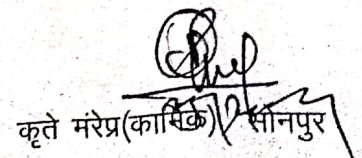 कृते मंरेप्र(कार्मिक) सोनपुर